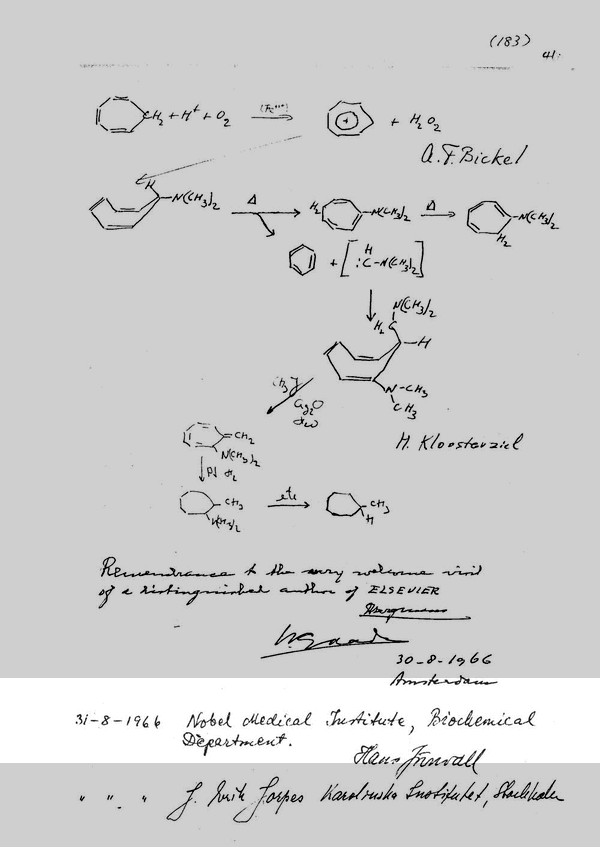 (183)
41.
CH2 + H+ + O2 (Fe+++) + + H2O2
A. F. Bickel
H
N(CH3)2 Δ H2 N(CH3)2 Δ N(CH3)2
H2
+ [ H :C-N(CH3)2 ]
N(CH3)2
H2C
H
CH3J
Ag2O
N-CH3
CH3
H. Kloosterziel
=CH2
N(CH3)2
Pd H2
CH3 etc CH3
N(CH3)2 H
Remembrance to the very welcome visit
of a distinguished author of ELSEVIER
30-8-1966
Amsterdam
31-8-1966 Nobel Medical Institute, Biochemical
Department.
Hans Jörnvall
" " " J. Erik Jorpes Karolinska Institutet, Stockholm